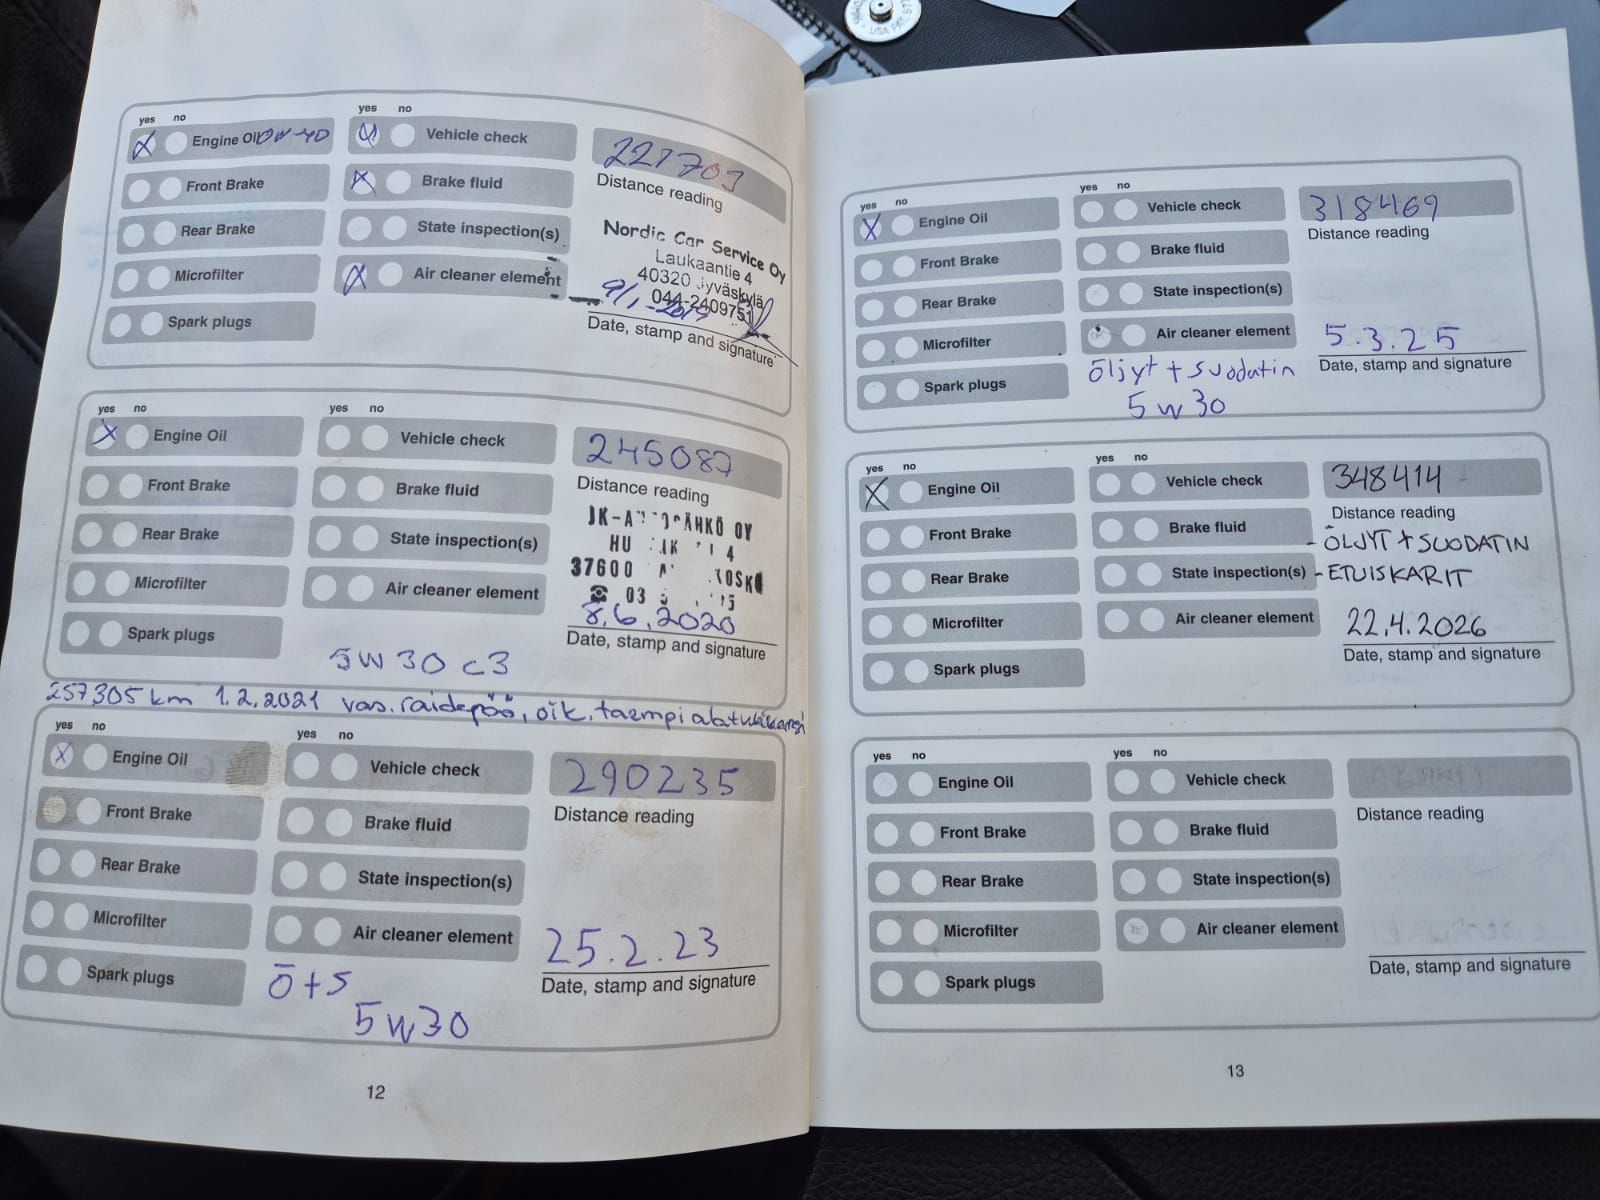 yes no
Engine Oil 0W-40
Front Brake
Rear Brake
Microfilter
Spark plugs
yes no
Vehicle check
Brake fluid
State inspection(s)
Air cleaner element
Distance reading
Nordic Car Service Oy
Laukaantie 4
40320 Jyväskylä
044-2409751
Date, stamp and signature
yes no
Engine Oil
Front Brake
Rear Brake
Microfilter
Spark plugs
yes no
Vehicle check
Brake fluid
State inspection(s)
Air cleaner element
5W30 C3
245087
Distance reading
OY
4
37600
03
8.6.2020
Date, stamp and signature
257305 km 1.2.2021 vas. raidepää, oik.
yes no
Engine Oil
Front Brake
Rear Brake
Microfilter
Spark plugs
yes no
Vehicle check
Brake fluid
State inspection(s)
Air cleaner element
ö+s
5W30
290235
Distance reading
25.2.23
Date, stamp and signature
12
yes no
Engine Oil
Front Brake
Rear Brake
Microfilter
Spark plugs
yes no
Vehicle check
Brake fluid
State inspection(s)
Air cleaner element
öljyt + suodatin
5W30
318469
Distance reading
5.3.25
Date, stamp and signature
yes no
Engine Oil
Front Brake
Rear Brake
Microfilter
Spark plugs
yes no
Vehicle check
Brake fluid
State inspection(s)
Air cleaner element
348414
Distance reading
- ÖLJYT + SUODATIN
- ETUISKARIT
22.4.2026
Date, stamp and signature
yes no
Engine Oil
Front Brake
Rear Brake
Microfilter
Spark plugs
yes no
Vehicle check
Brake fluid
State inspection(s)
Air cleaner element
Distance reading
Date, stamp and signature
13